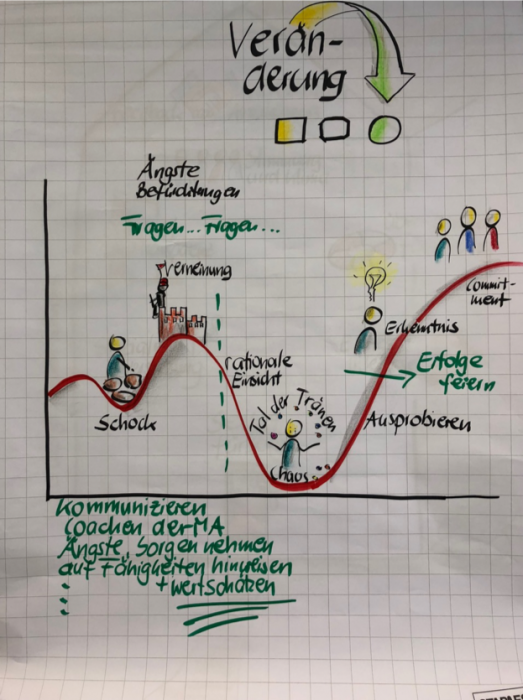 Verän-
derung
Ängste
Befürchtungen
Fragen... Fragen...
Verneinung
Commit-
ment
Erkenntnis
rationale
Einsicht
Erfolge
feiern
Tal der Tränen
Schock
Ausprobieren
Chaos
Kommunizieren
Coachen der MA
Ängste, Sorgen nehmen
auf Fähigkeiten hinweisen
+ wertschätzen